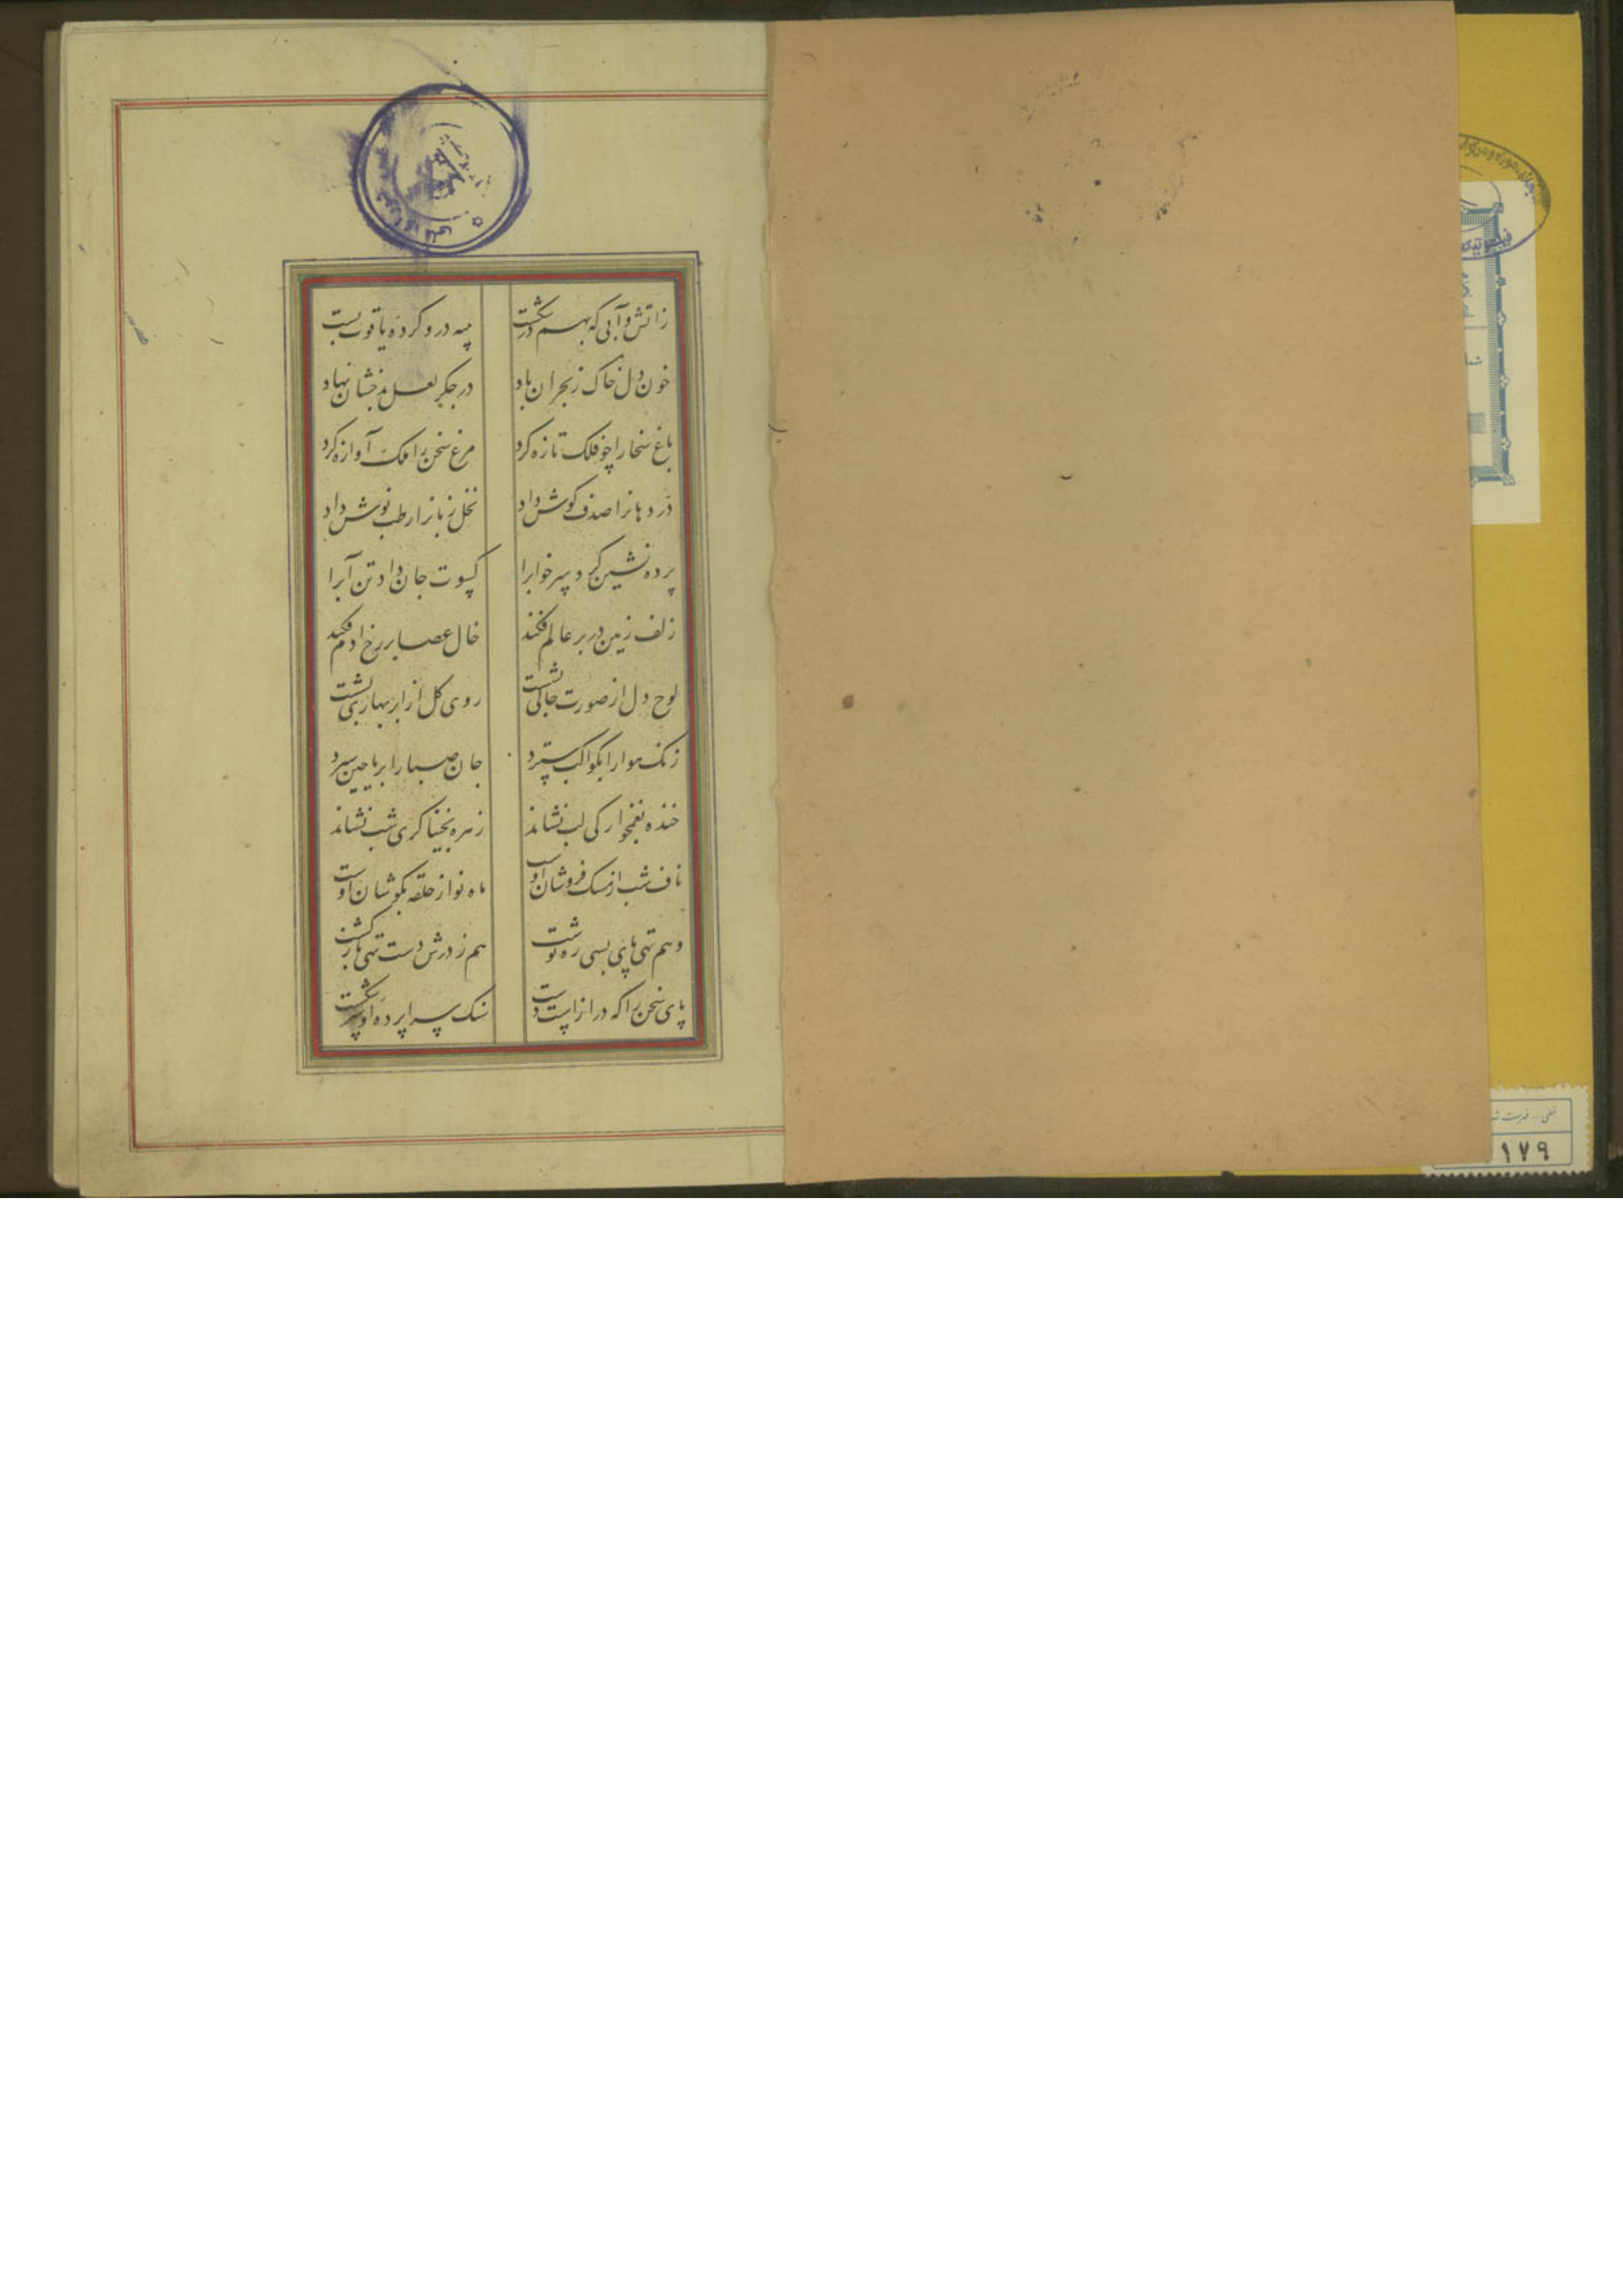 زاتش و آبی که بهم در شکست    پیه در و گرده یاقوت بست
خون دل خاک ز بحران باد    در جگر لعل بدخشان نهاد
باغ سخا را چو فلک تازه کرد    مرغ سخن را ملک آوازه کرد
در دهانرا صدف کوش داد    نخل زبانرا رطب نوش داد
پرده نشین کرد سر خوابرا    کسوت جان داد تن آبرا
زلف زمین در بر عالم فکند    خال عصا بر رخ ادم فکند
لوح دل از صورت جانی بشست    روی کل از ابر بهاری بشست
زنک هوا را بکواکب سترد    جان صبا را بریاحین سپرد
خنده بغمخوارکی لب نشاند    زهره بخنیاکری شب نشاند
ناف شب از مسک فروشان اوست    ماه نو از حلقه بکوشان اوست
وهم تهی پای بسی ره نوشت    هم ز درش دست تهی بازگشت
پای سخن را که دراز است دست    سنک سراپرده او سر شکست
۱۷۹